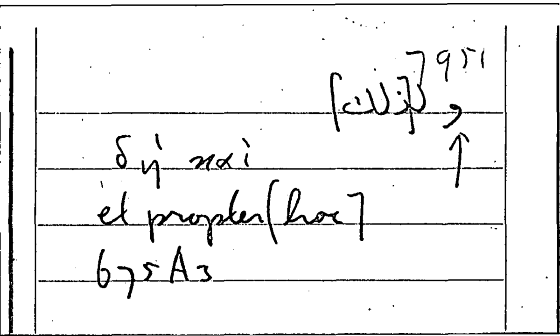 951
δὴ καὶ
et propter [hoc]
675 A3